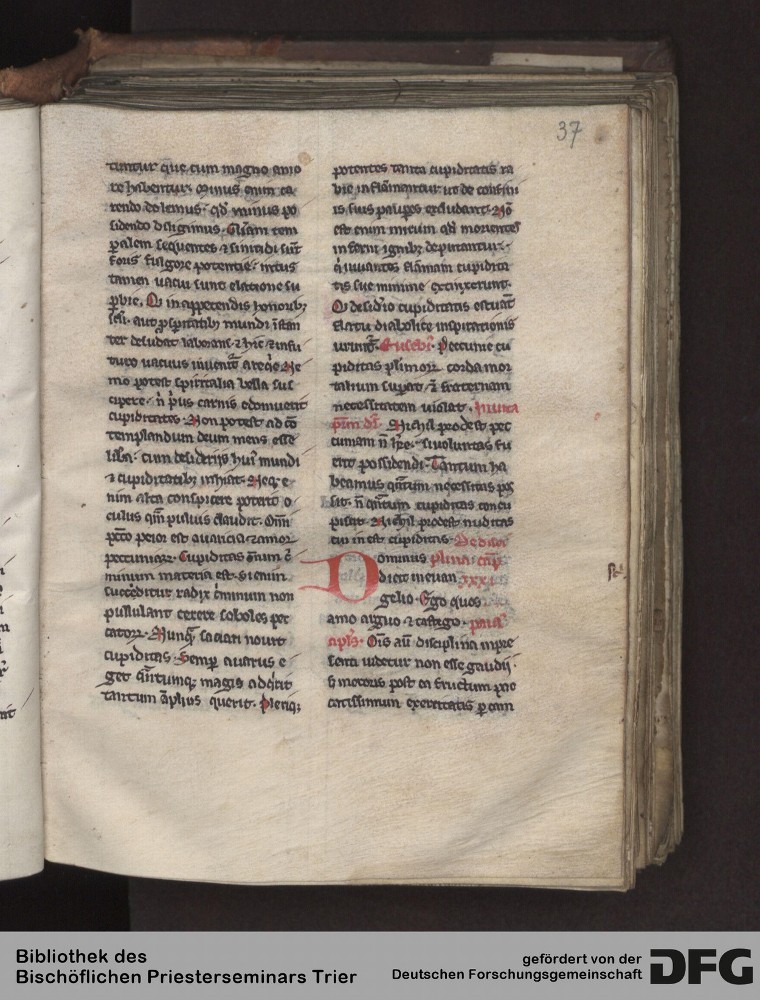 37
tuntur que cum magno amo
re habentur. Minus enim ca
rendo dolemus. qd minus po
sidendo diligimus. Quidam tem
palem sequentes
foris fulgore potentie. intus
tamen vacui sunt elatione su
perbie. Qi in appetendis honoribz
aut prosperitatibz mundi instan
ter desudat laborans. et hic et in fu
turo vacuus invenit a requie Ne
mo potest spiritalia bella sus
cipere. n prius carnis edomuerit
cupiditates. Non potest ad co
templandum deum mens esse
libera. cum desideriis hui mundi
et cupiditatibz inhiat. Neqz e
nim alta conspicere poterit o
culus qm pulvis claudit. Omi
pcco peior est avaricia et amor
pecuniarz. Cupiditas omnium e
criminum materia est. Si enim
succeditur radix criminum non
pullulant cetere soboles pec
catorz. Nunqm saciari novit
cupiditas. Semper avarus e
get quantumqz magis adqirit
tantum amplius querit. Pleriqz
potentes tanta cupiditatis ra
bie inflammantur ut de confini
is suis pauperes excludant. No
est enim mirum qd morientes
inferni ignibz deputantur.
qi viventes flammam cupidita
tis sue minime extinxerunt.
Qi desiderio cupiditatis estuant
flatu diabolice inspirationis
uruntur. Eusebi. Peccunie cu
piditas plurimorz corda mor
talium superat. et fraternam
necessitatem violat.
Nichil prodest pec
cuniam non habere. si voluntas fu
erit possidendi. Tantum ha
beamus quantum necessitas pos
cit. n quantum cupiditas concu
piscit. Nichil prodest nuditas
cui inest cupiditas. De disci
Dominus plina cap
dicit in evan xxxi
gelio. Ego quos
amo arguo et castigo. paul
apls. Ois au disciplina in pre
senti videtur non esse gaudii.
s meroris post ea fructum pac
catissimum exercitatis p eam
Bibliothek des
Bischöflichen Priesterseminars Trier
gefördert von der
Deutschen Forschungsgemeinschaft
DFG